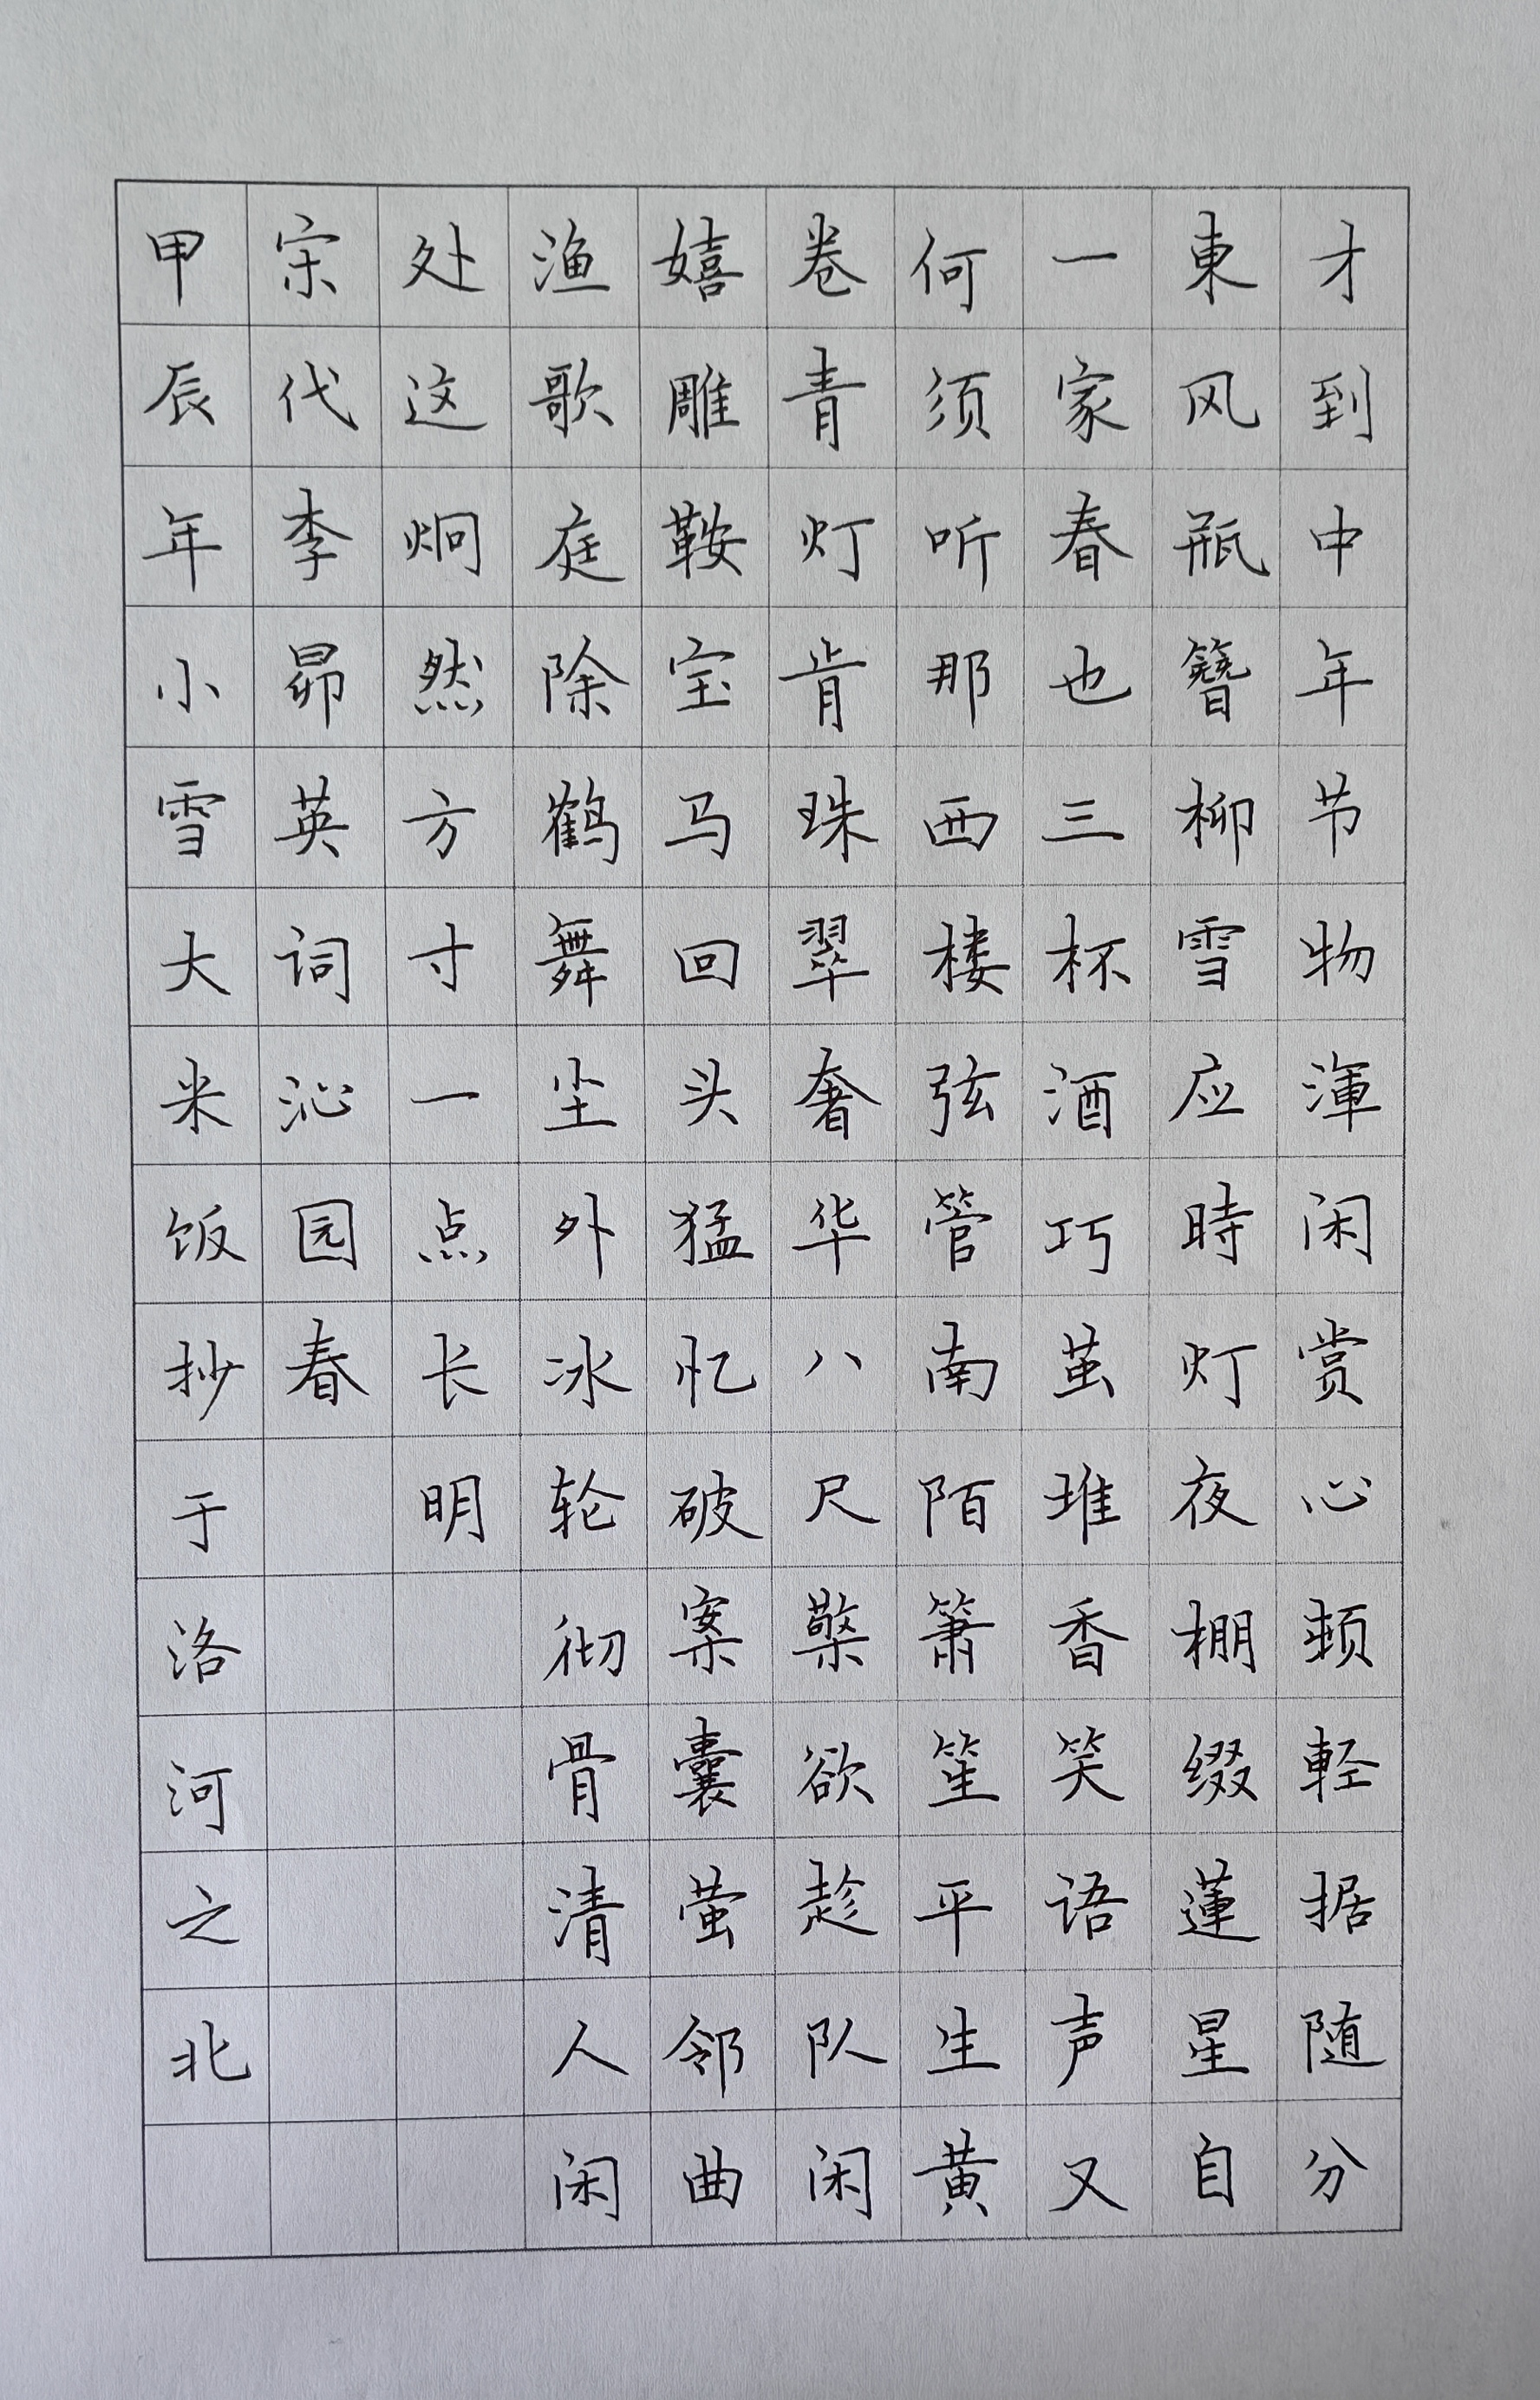 才到中年节物渾闲赏心頼軽据随分
東风瓶簪柳雪应時灯夜棚缀蓮星自
一家春也三杯酒巧茧堆香笑语声又
何须听那西楼弦管南陌箫笙平生黄
卷青灯肯珠翠奢华八尺檠欲趁队闲
嬉雕鞍宝马回头猛忆破案囊萤邻曲
渔歌庭除鹤舞尘外冰轮彻骨清人闲
处这炯然方寸一点长明
宋代李昴英词沁园春
甲辰年小雪大米饭抄于洛河之北